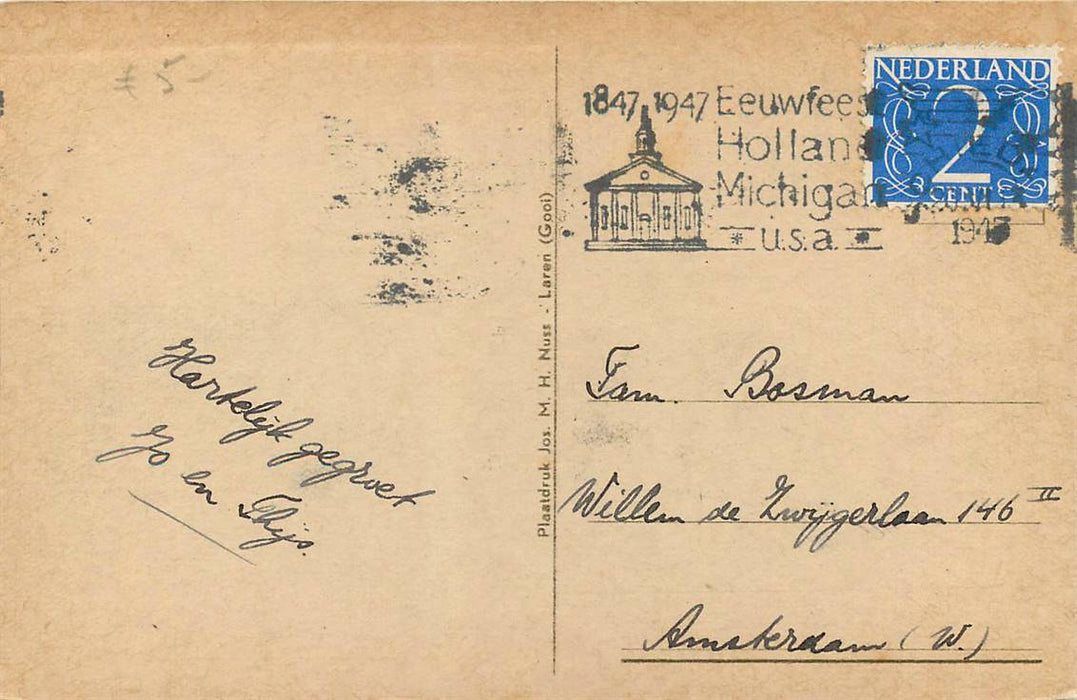 € 5-
1847 1947 Eeuwfees
Holland
Michigan
u.s.a.
NEDERLAND
2
CENT
1947
Plaatdruk Jos. M. H. Nuss - Laren (Gooi)
Hartelijk gegroet
Jo en Thijs.
Fam. Bosman
Willem de Zwijgerlaan 146 II
Amsterdam (W.)